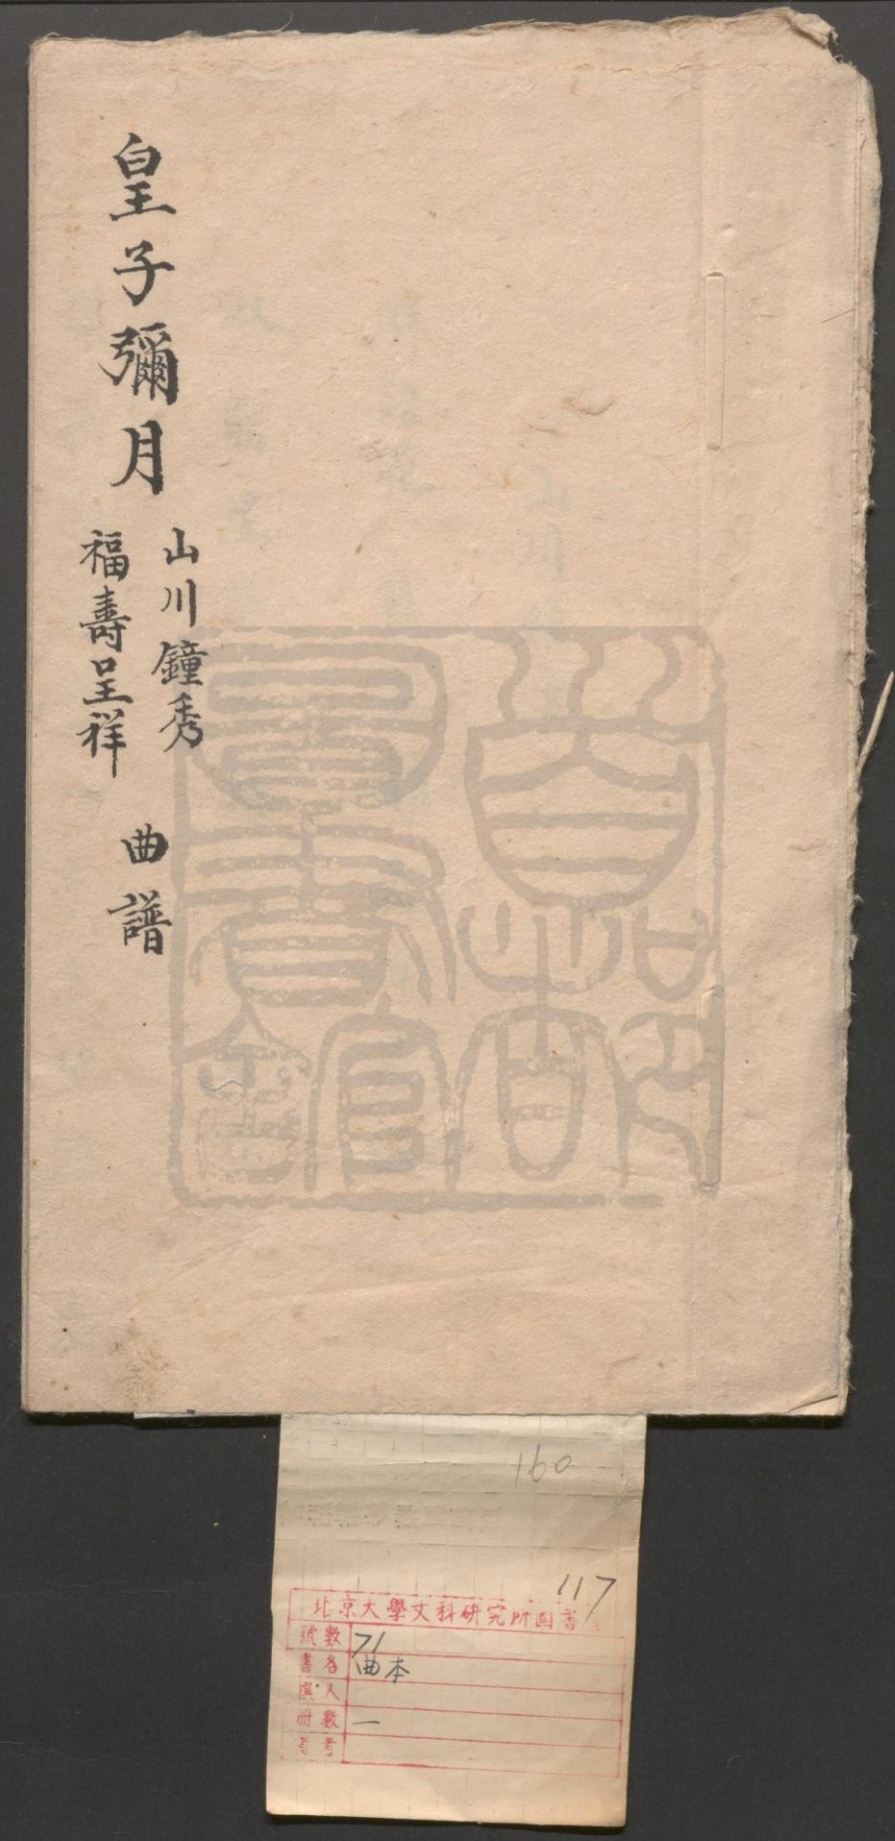 皇子彌月
山川鐘秀
福壽呈祥
曲譜
首都圖書館
160
117
北京大學文科研究所圖書
號數 71
書名 曲本
撰人
冊數 一
考